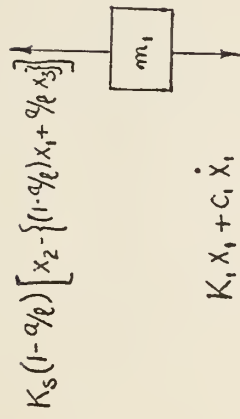 K_s(1-a/ℓ)[x_2-{(1-a/ℓ)x_1+a/ℓ x_3}]
m_1
K_1 x_1 + c_1 ẋ_1